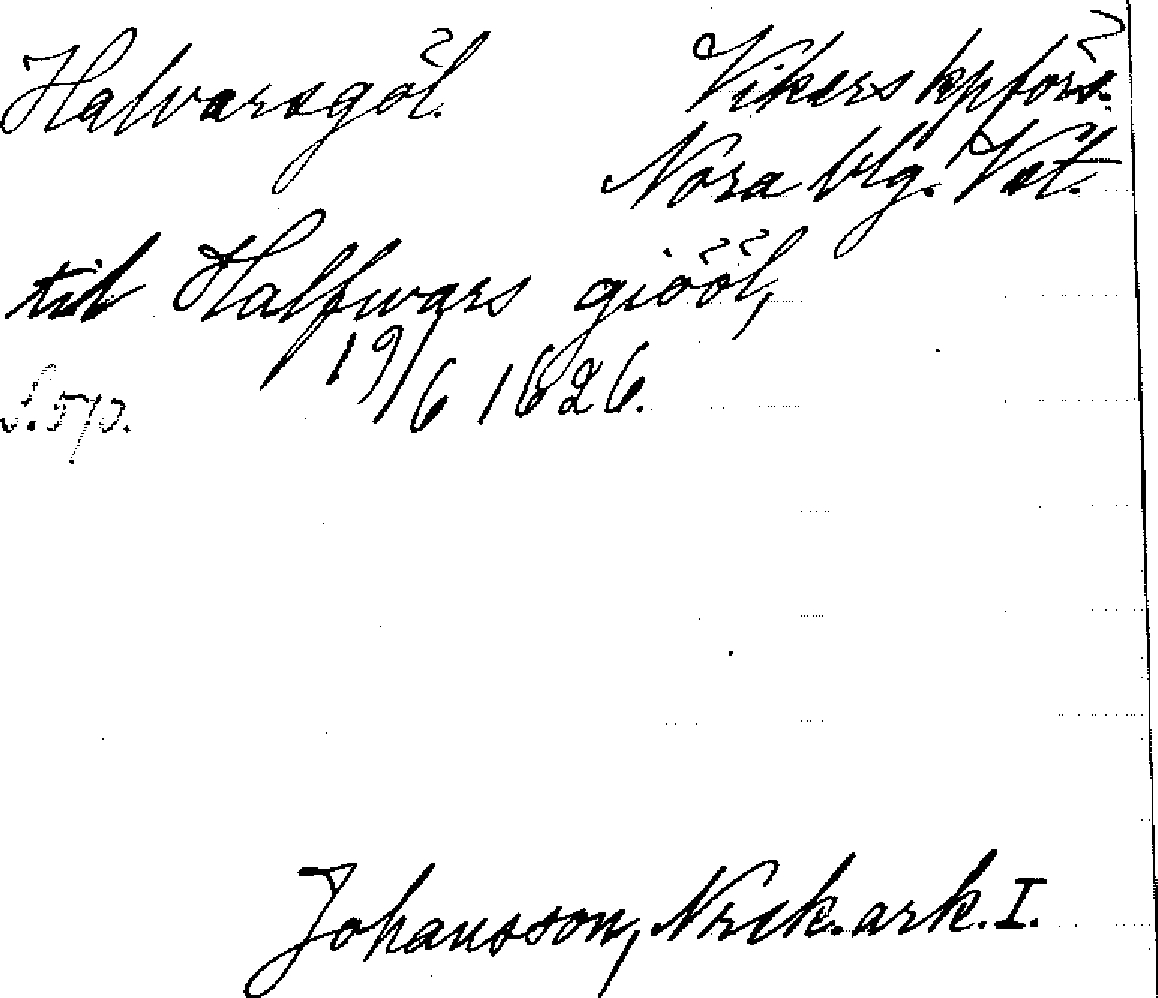 Halvarsgöl. Vikers kpförs.
Nora blg. Vstm.
till Halfwars giööl,
19/6 1626.
S. 570.
Johansson, Nrck. ark. I.